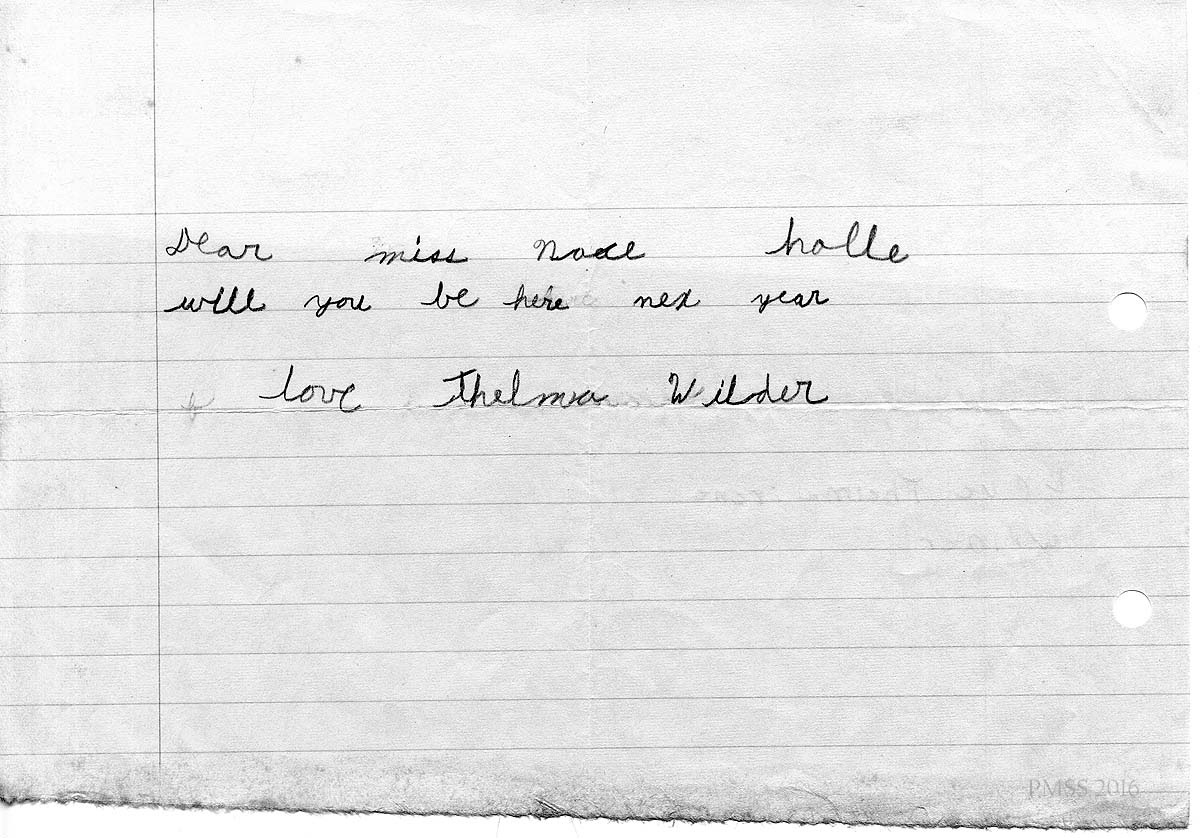 Dear miss Noxe holle
will you be here nex year
love Thelma Wilder
PMSS 2016